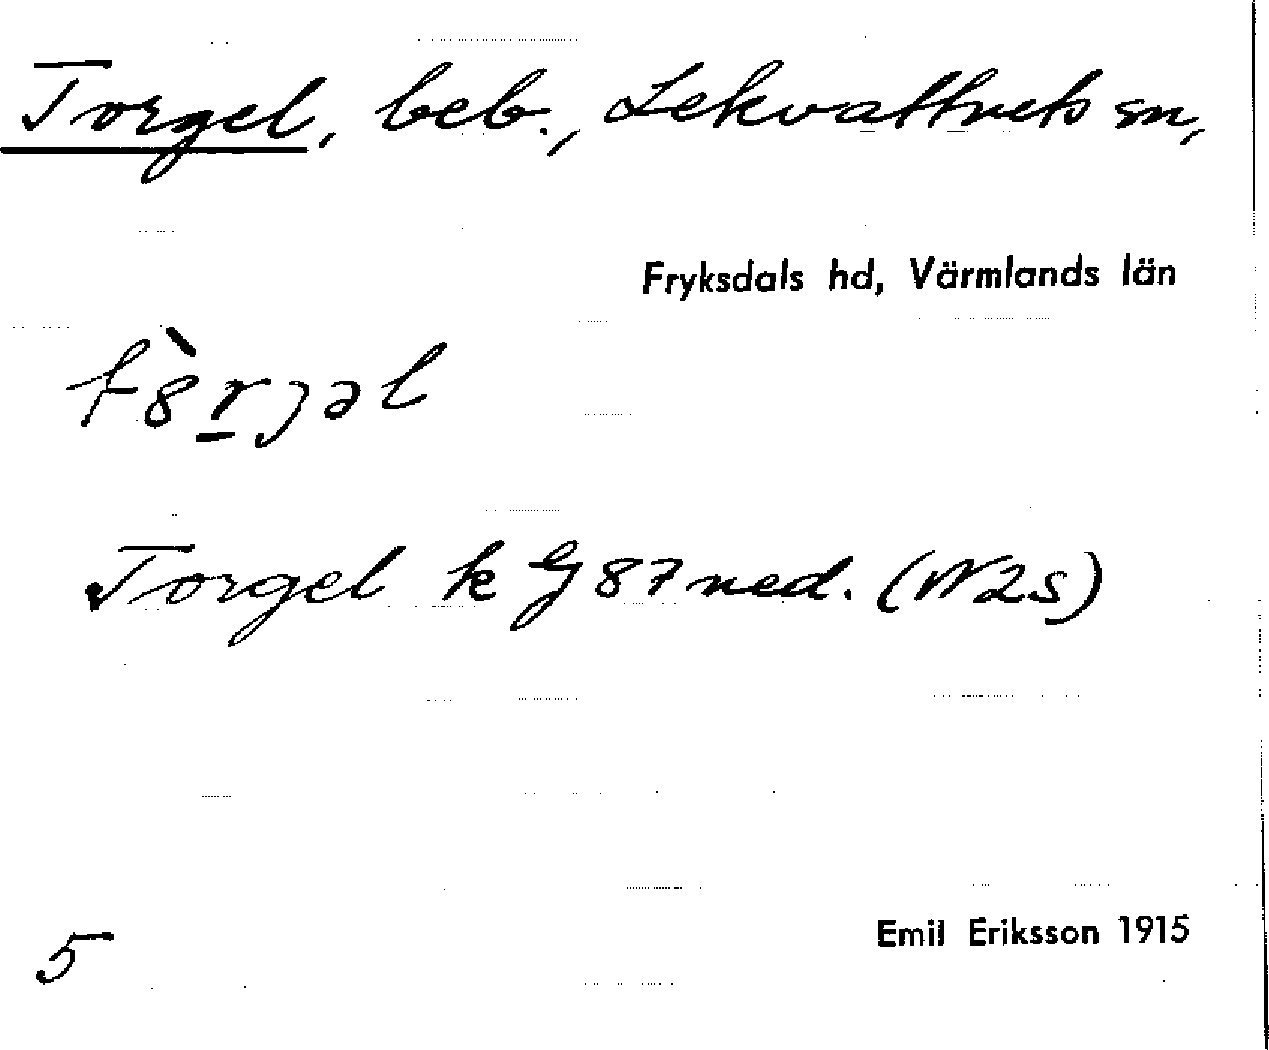 Torgel, beb., Lekvattnets sn,
Fryksdals hd, Värmlands län
Torgel k G 87 ned. (W2S)
Emil Eriksson 1915
5